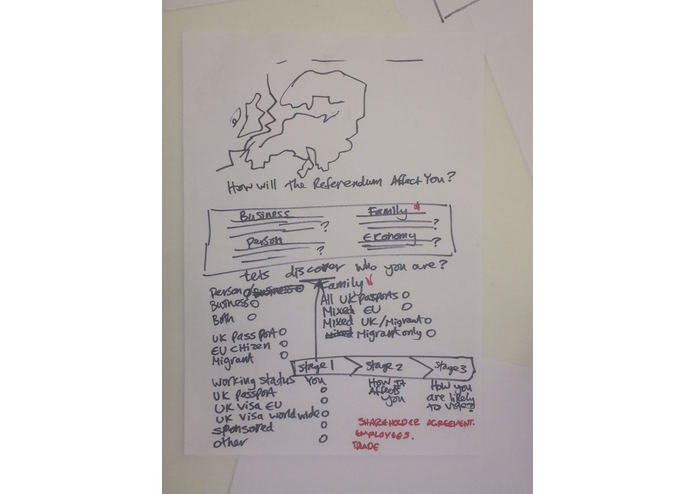 How will The Referendum Affect You?
Business Family
? ?
Person Ekonomy
? ?
Lets discover who you are?
Person Family
Business All UK Passports
Both Mixed EU
Mixed UK/Migrant
UK Passport Migrant only
EU Citizen
Migrant
Stage 1 Stage 2 Stage 3
Working status You How it How you
UK Passport affects are likely
UK Visa EU you to vote?
UK Visa World wide
Sponsored SHAREHOLDER AGREEMENT.
EMPLOYEES.
other TRADE